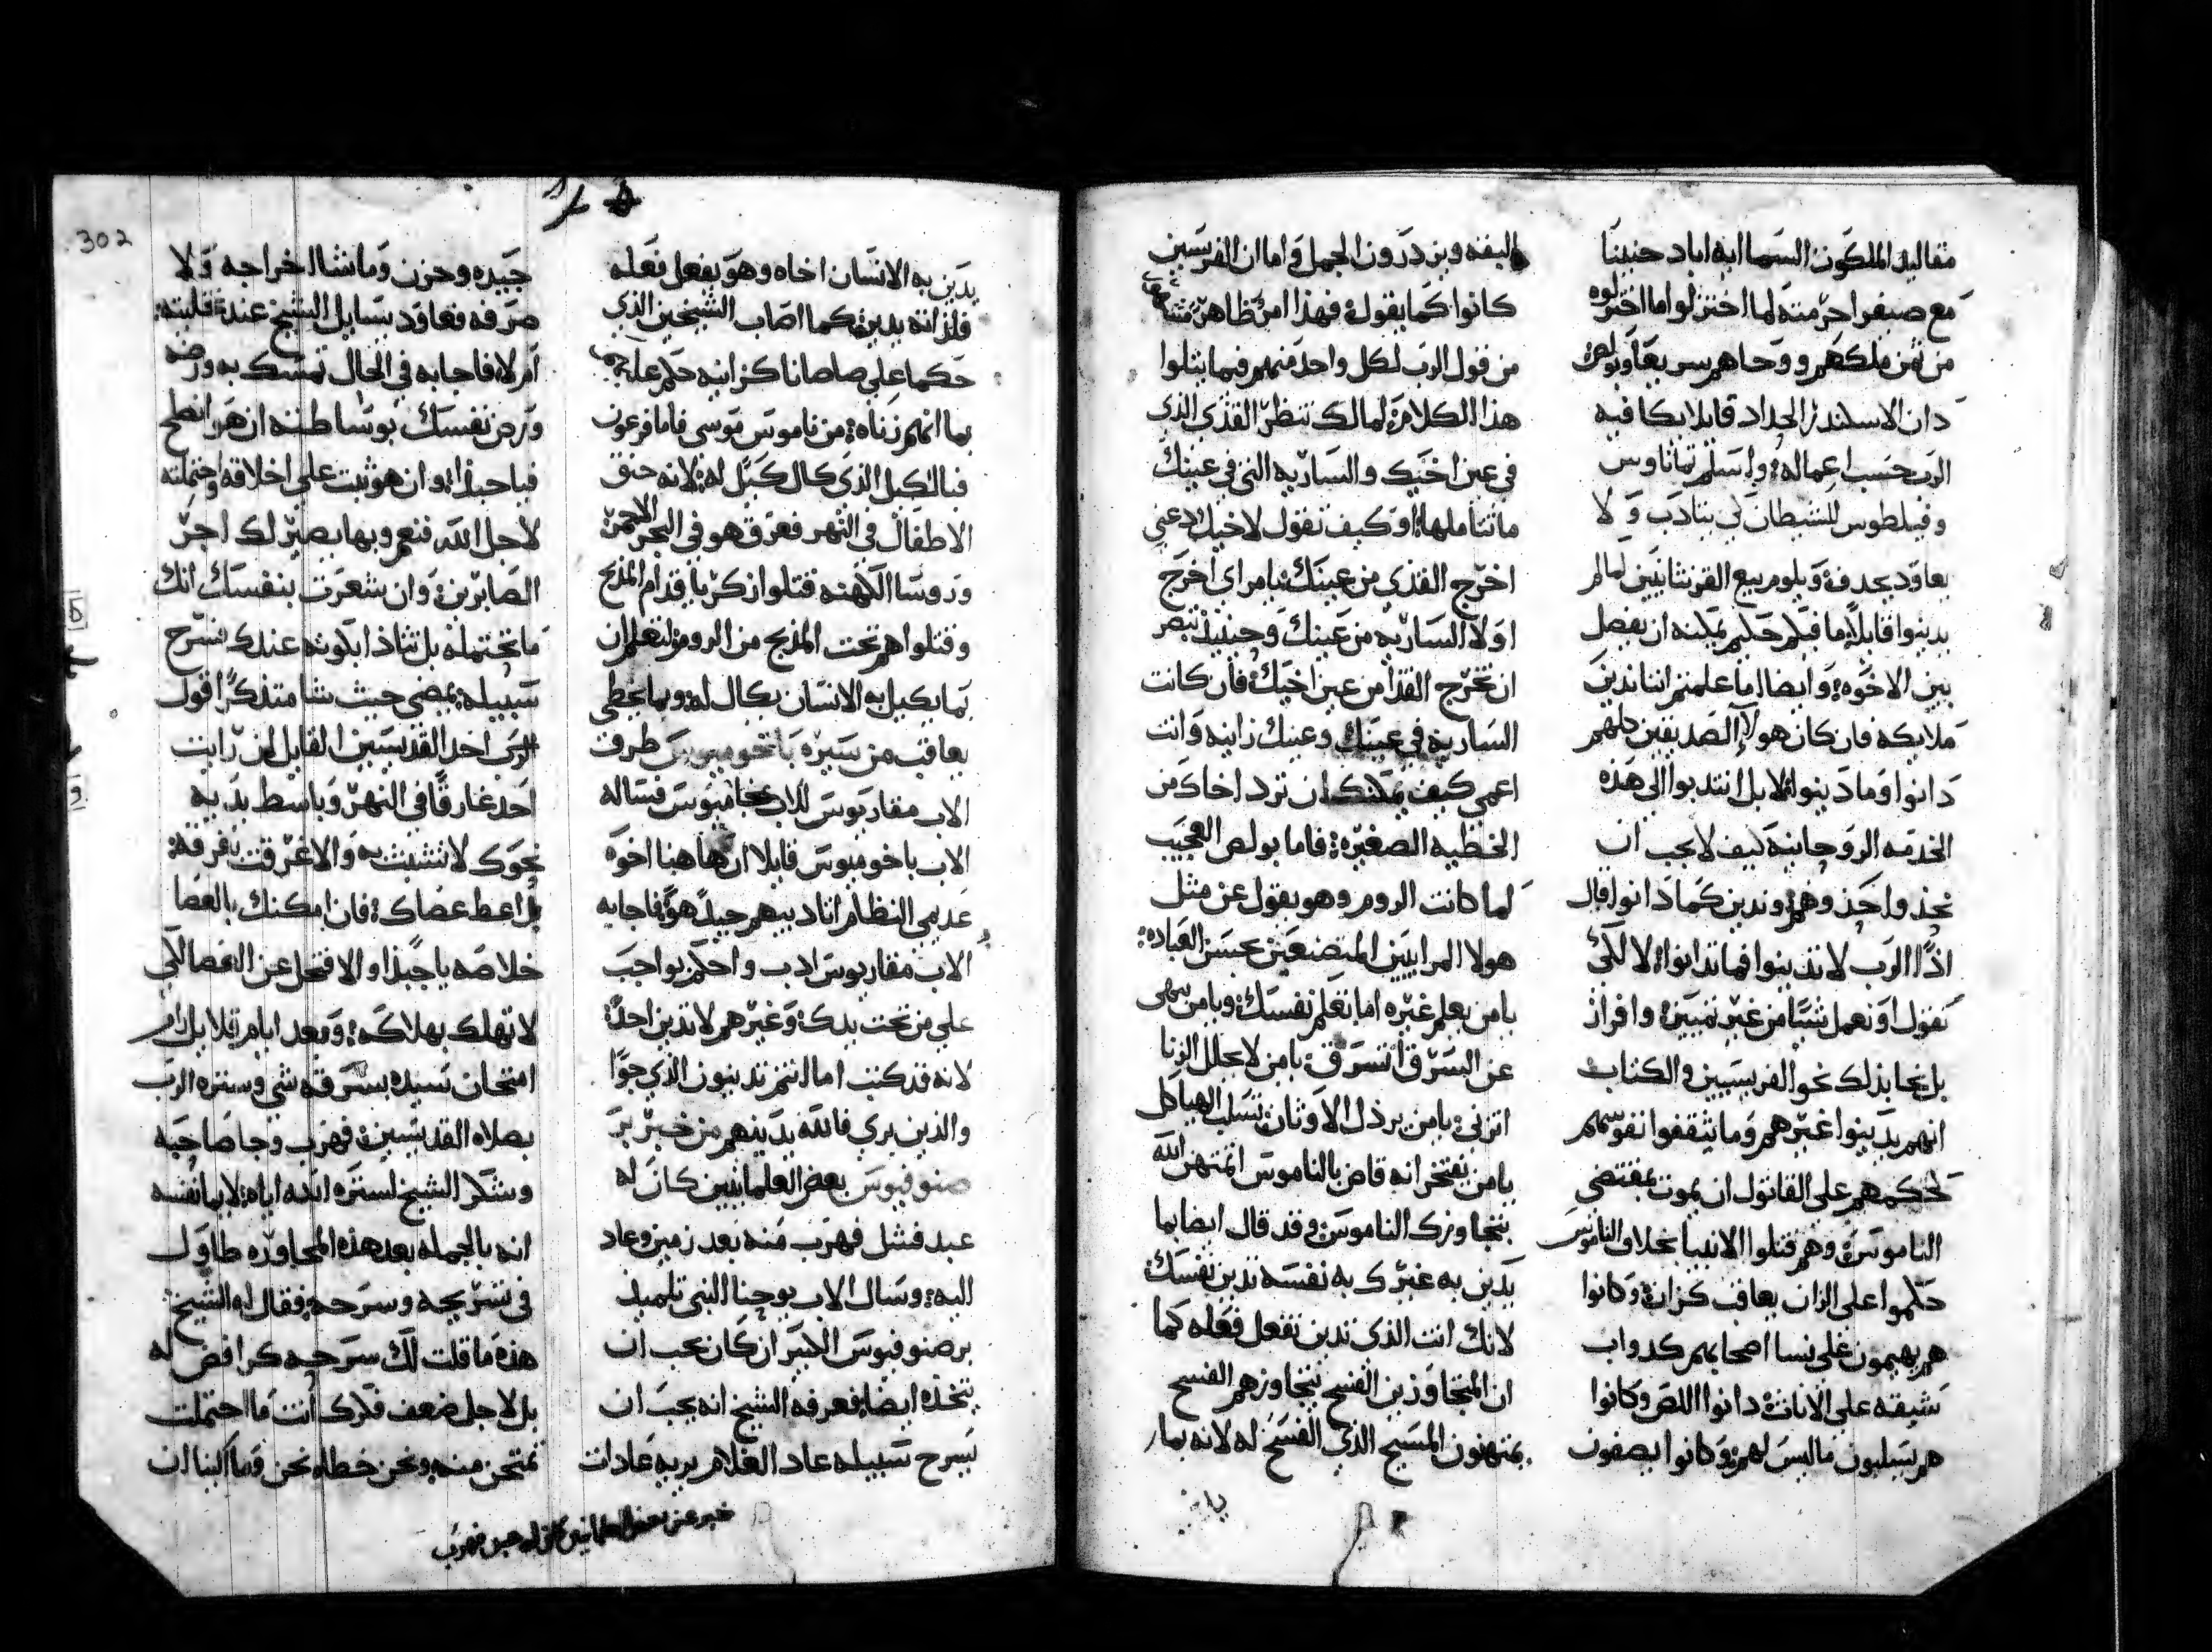 مقاليد الملكوت السما ايه اباد حنيننا
مع صيفر احرمته لما اختزلوا اما اختزلوه
من ثمن ملكهم و وحاهم سريعا وبولص
دان الاسكندر الحداد قايلا يكافيه
الرب حسب اعماله واسلم تمانا وس
وفيلطوس للشيطان لكي يتادب ولا
يعاود يجدف ويلوم بيع القرنثانيين لما لم
يدينوا قايلا ما فيكم حكيم يمكنه ان يفصل
بين الاخوه وايضا اما علمتم اننا ندين
ملايكه فان كان هولاء الصديقين كلهم
دانوا وما دينوا لا بل انتدبوا الى هذه
الخدمه الروحانيه كيف لا يجب ان
نحذوا حذوهم وندين كما دانوا قال
اذا الرب لا تدينوا فما تدانوا لا لكي
نقول او نعمل شيا من غير تمييز وافراز
بل نحا بذلك نحو الفريسيين والكتاب
انهم يدينوا غيرهم وما يثقفوا نفوسهم
لحكمهم على القاتول ان يموت بمقتضى
الناموس وهم قتلوا الانبيا بخلاف الناموس
حكموا على الزان يعاقب كزان وكانوا
هم يهيمون على نسا اصحابهم كدواب
شبقه على الاناث دانوا اللص وكانوا
هم يسلبون ما ليس لهم وكانوا يصفون
البقه ويزدردون الجمل واما ان الفريسين
كانوا كما يقول فهذا امر ظاهر
من قول الرب لكل واحد منهم فيما يتلوا
هذا الكلام لما لك تنظر القذى الذي
في عين اخيك والساريه التي في عينك
ما تتاملها او كيف تقول لاخيك دعني
اخرج القذى من عينك يا مراي اخرج
اولا الساريه من عينك وحينيذ تبصر
ان تخرج القذا من عين اخيك فان كانت
الساريه في عينك وعينك زانيه وانت
اعمى كيف يمكنك ان ترد اخاك من
الخطيه الصغيره فاما بولص العجيب
لما كاتب الروم وهو يقول عن مثل
هولا المرايين المتصنعين بحسن العباده
يا من يعلم غيره اما تعلم نفسك ويا من ينهى
عن السرق اتسرق يا من لا يحلل الزنا
اتزني يا من يرذل الاوثان تسلب الهياكل
يا من يفتخر انه قاض بالناموس اتمتهن الله
بتجاوزك الناموس وقد قال ايضا بما
يدين به غيرك به نفسه تدين نفسك
لانك انت الذي تدين تفعل فعله كما
ان المتجاوزين الفسح نتجاوزهم الفسح
يمتهنون المسيح الذي الفسح له لانه بما
يدين به الانسان اخاه وهو يفعل فعله
فلزاته يدين كما اصاب الشيخين الذي
حكما على صاصانا كزانيه حكم عليهما
بما انهم زناه من ناموس موسى فاما فرعون
فبالكيل الذي كال كيل له لانه خنق
الاطفال في النهر فغرق هو في البحر الاحمر
وروسا الكهنه قتلوا زكريا قدام المذبح
وقتلوا هم تحت المذبح من الروم لتعلم ان
بما يكيل به الانسان يكال له وبما يخطي
يعاقب من سيره باخوميوس طرق
الاب مقاريوس للاب بخاميوس فساله
الاب باخوميوس قايلا ان هاهنا اخوه
عديمي النظام اتاديبهم جيد هو فاجابه
الاب مقاريوس ادب واحكم بواجب
على من تحت يدك وغيرهم لا تدين احد
لانه قد كتب اما انتم تدينون الذي جوا
والذين بري فالله يدينهم من خبر بر
صنوفيوس بعض العلمانيين كان له
عبد فشل فهرب منه بعد زمين وعاد
اليه وسال الاب يوحنا النبي تلميذ
برصنوفيوس الكبير ان كان يجب ان
يتخذه ايضا فعرفه الشيخ انه يجب ان
يسرح سبيله عاد الغلام بريه عادات
جيده وحزن وما شا اخراجه ولا
صرفه فعاود يسايل الشيخ عنده قلبته
ام لا فاجابه في الحال تمسك به ورضه
ورض نفسك بوساطته ان هو انصلح
فيا حبذا وان هو ثبت على اخلاقه واحتملته
لاجل الله فنعم وبها يصير لك اجر
الصابرين وان شعرت بنفسك انك
ما تحتمله بل تتاذا بكونه عندك فسرح
سبيله يمضي حيث شا متذكرا قول
احد القديسين القايل ان رايت
احد غارقا في النهر وباسط يديه
نحوك لا تتشبث به والا غرقت بغرقه
بل اعط عصاك فان امكنك بالعصا
خلاصه يا حبذا والا فتخل عن العصا لكي
لا تهلك بهلاكه وبعد ايام قلايل رام
امتحان سيده بسرقه شي وستره الرب
بصلاه القديسين فهرب وجا صاحبه
وشكر الشيخ لستره الله اياه لايما نفسه
انه بالجمله بعد هذه المجاوده طاول
في تسريحه وسرحه فقال له الشيخ
هذه ما قلت لك سرحه كرافض له
بل لاجل ضعف فكرك انت ما احتملت
تمتحن منه ونحن خطاه نحن وما كنا ان
302
خبر عن بعض العلمانيين كان له عبد فهرب